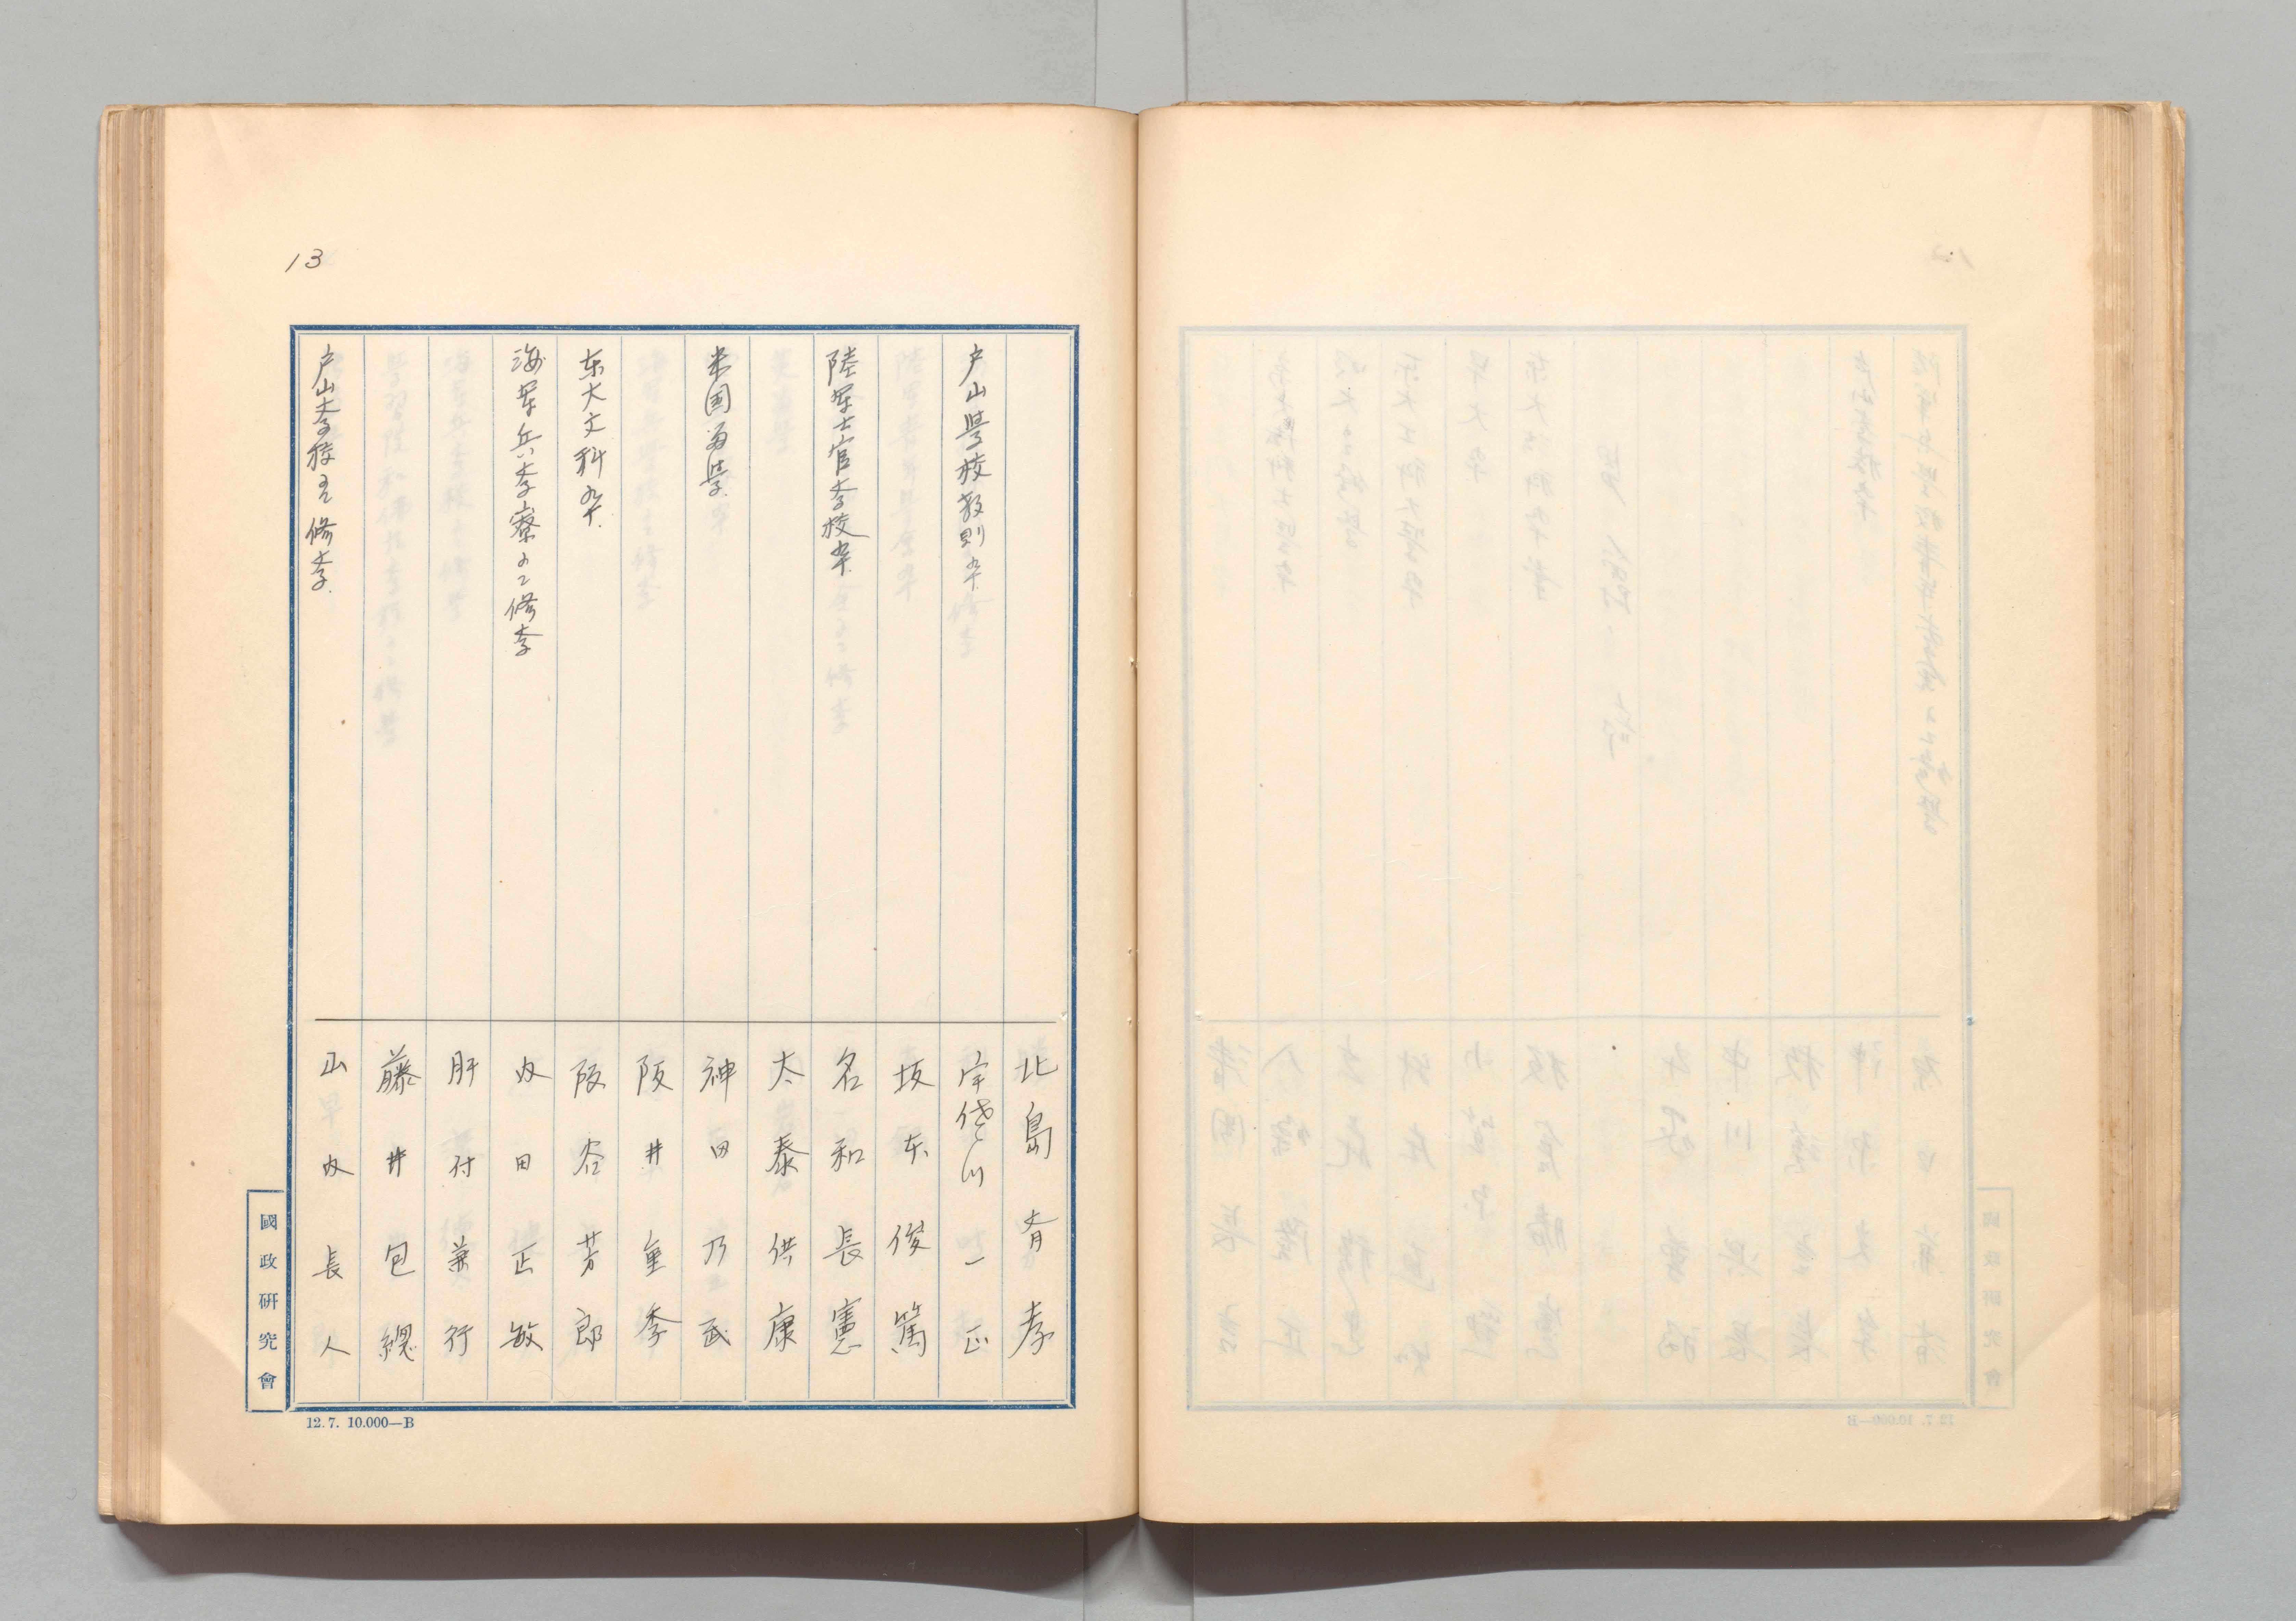 13
北島齊孝
戸山學校教則卆.
宇佐川一正
坂本俊篤
陸軍士官孝校卆.
名和長憲
太秦供康
米国留学.
神田乃武
阪井重季
东大文科卆.
阪谷芳郎
海軍兵孝寮ニ修孝
内田正敏
肝付兼行
藤井包總
戸山孝校ニ修孝.
山内長人
國政研究會
12.7. 10.000—B